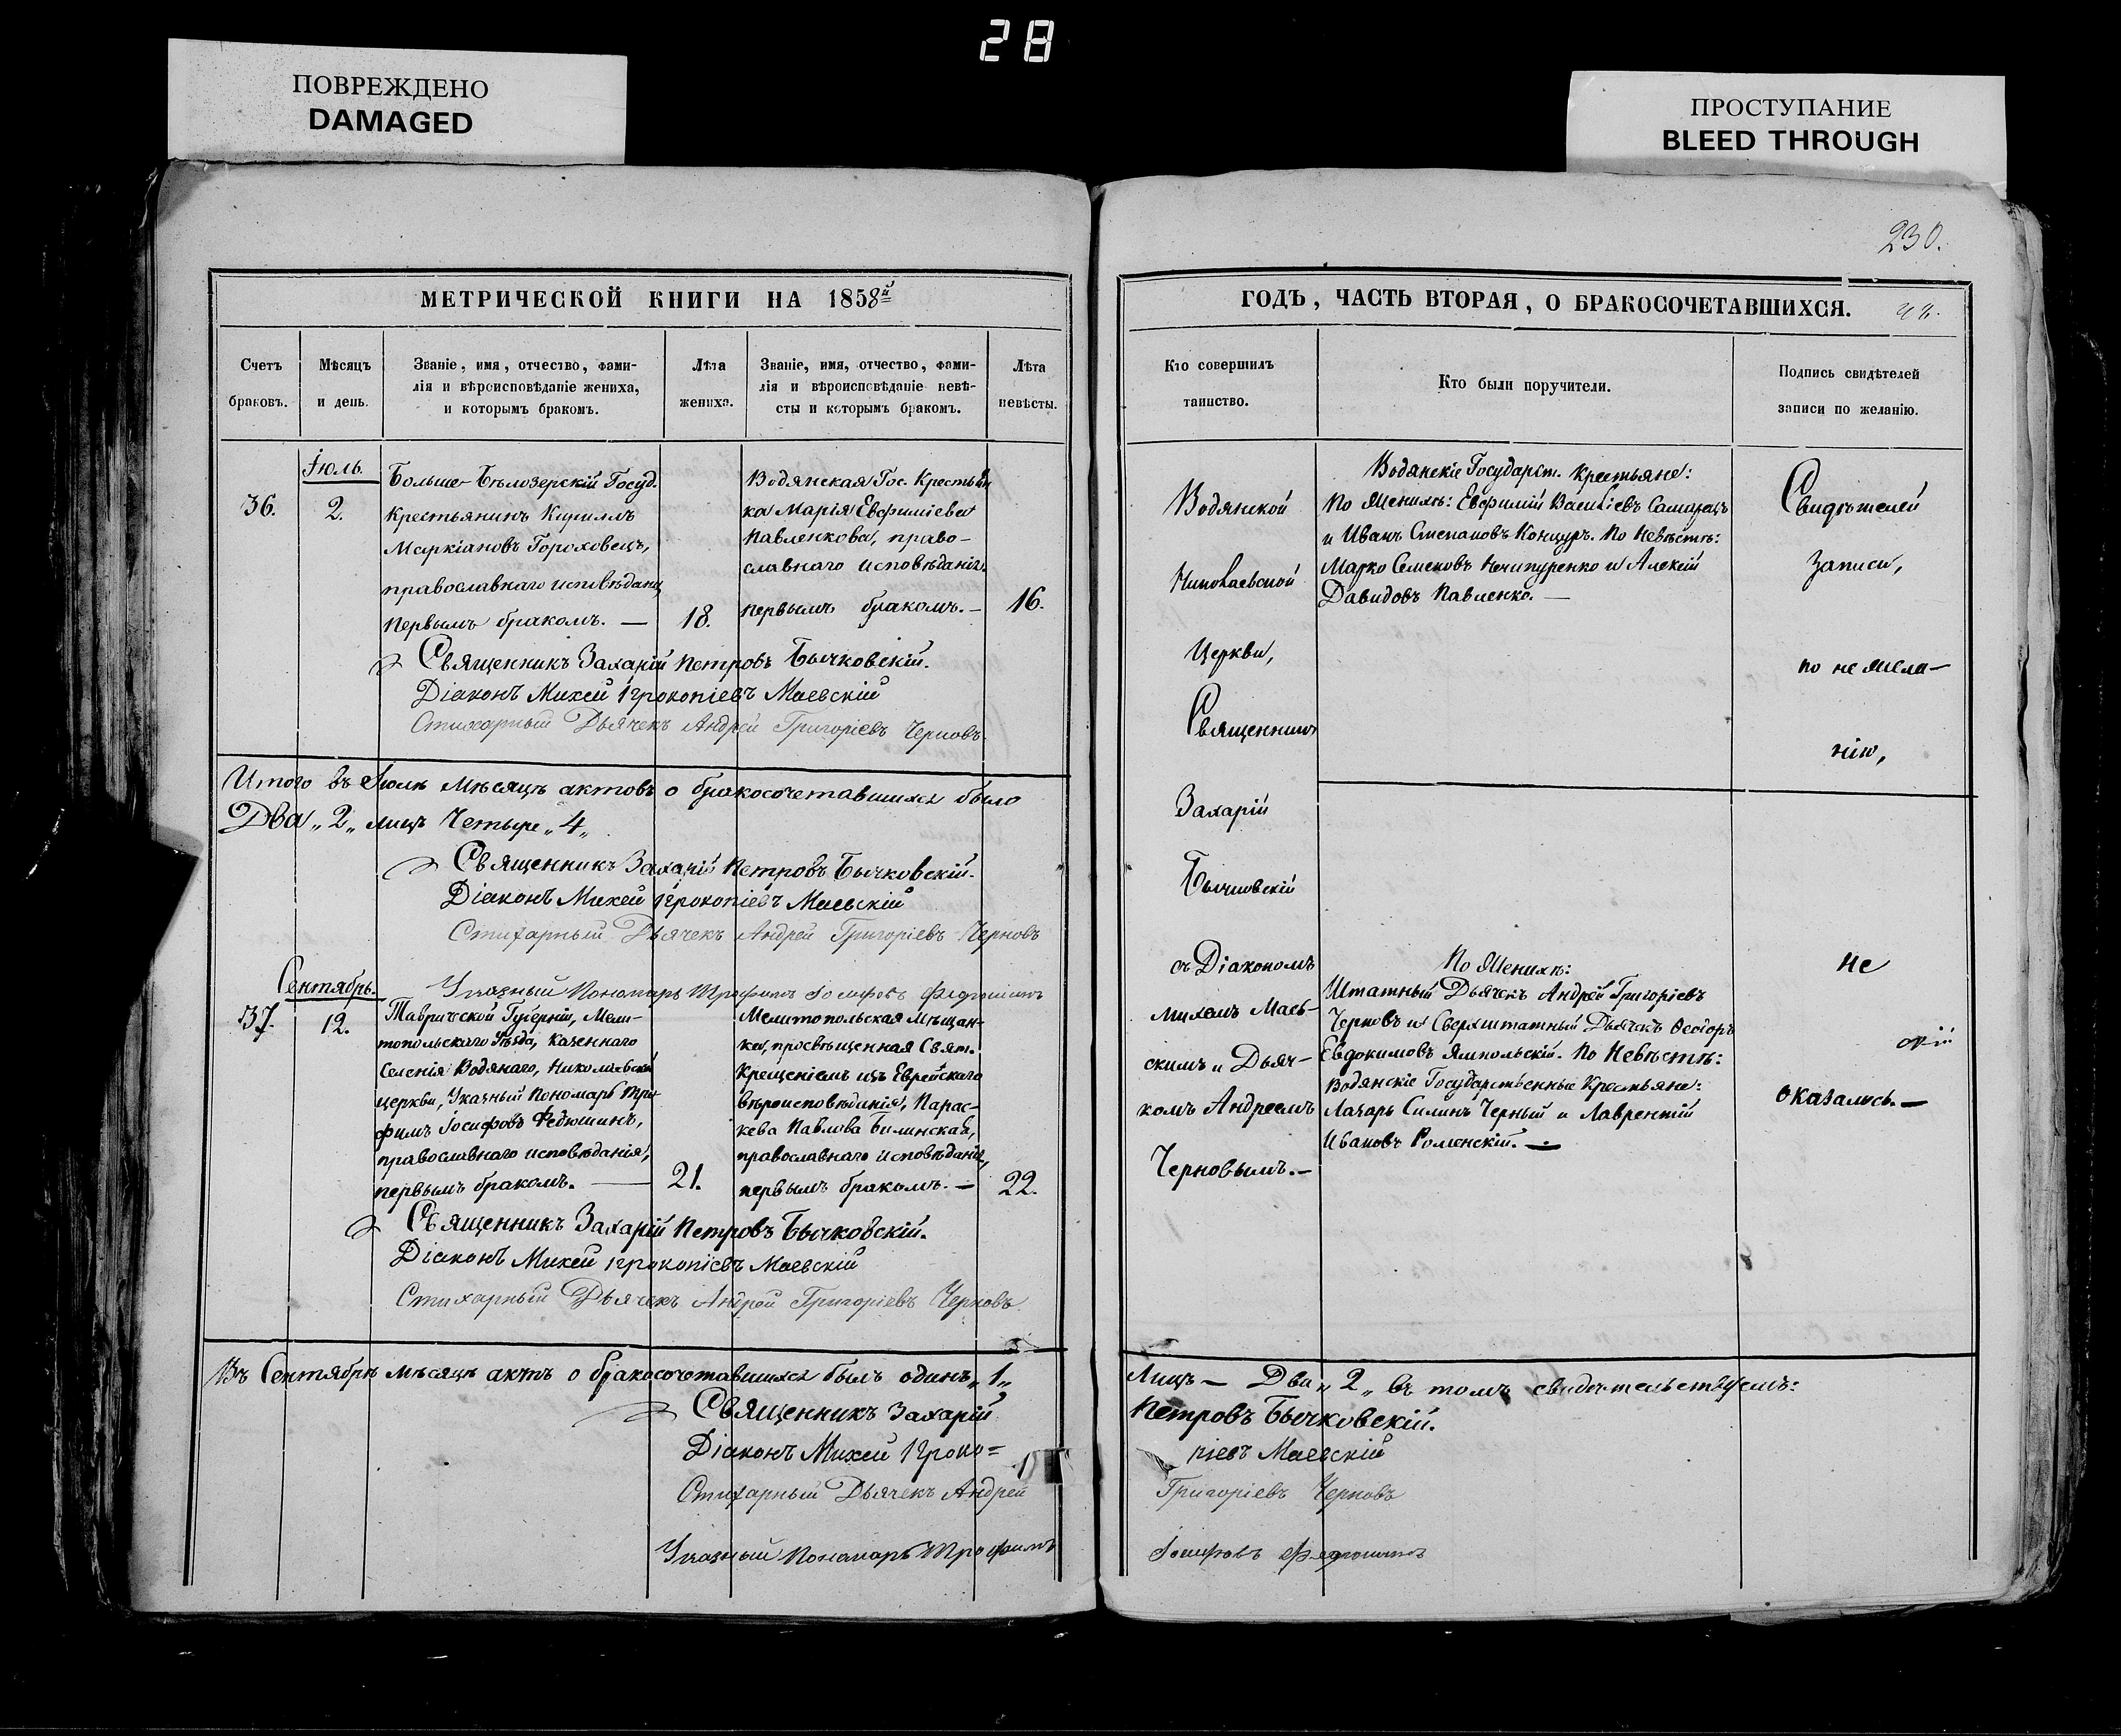 28
ПОВРЕЖДЕНО
DAMAGED
ПРОСТУПАНИЕ
BLEED THROUGH
230.
МЕТРИЧЕСКОЙ КНИГИ НА 1858й
Счетъ браковъ.
Мѣсяцъ и день.
Званіе, имя, отчество, фами-
лія и вѣроисповѣданіе жениха,
и которымъ бракомъ.
Лѣта жениха.
Званіе, имя, отчество, фами-
лія и вѣроисповѣданіе невѣ-
сты и которымъ бракомъ.
Лѣта невѣсты.
36.
Іюль.
2.
Больше-Бѣлозерскій Госуд.
Крестьянинъ Кириллъ
Маркіановъ Гороховецъ,
православнаго исповѣданія,
первымъ бракомъ. —
18.
Водянская Гос. Крестьян
ка Марія Евфиміева
Павленкова, право-
славнаго исповѣданія
первымъ бракомъ. —
16.
Священникъ Захарій Петровъ Бычковскій.
Діаконъ Михей Прокопіевъ Маевскій
Стихарный Дьячекъ Андрей Григоріевъ Черновъ.
Итого въ Іюлѣ мѣсяцѣ актовъ о бракосочетавшихся было
Два „2„ лицъ Четыре „4„
Священникъ Захарій Петровъ Бычковскій.
Діаконъ Михей Прокопіевъ Маевскій
Стихарный Дьячекъ Андрей Григоріевъ Черновъ
Указный Пономарь Трофимъ Іосифовъ Федюшинъ
Сентябрь.
37.
12.
Таврической Губерніи, Мели-
топольскаго Уѣзда, Казеннаго
Селенія Водянаго, Николаевской
церкви, Указный Пономарь Тро
фимъ Іосифовъ Федюшинъ,
православнаго исповѣданія,
первымъ бракомъ. —
21.
Мелитопольская Мѣщан-
ка, просвѣщенная Свят.
Крещеніемъ изъ Еврейскаго
вѣроисповѣданія, Парас-
кева Павлова Билинская,
православнаго исповѣданія,
первымъ бракомъ. —
22.
Священникъ Захарій Петровъ Бычковскій.
Діаконъ Михей Прокопіевъ Маевскій
Стихарный Дьячекъ Андрей Григоріевъ Черновъ
Въ Сентябрѣ мѣсяцѣ актъ о бракосочетавшихся былъ одинъ „1„
Священникъ Захарій
Діаконъ Михей Проко=
Стихарный Дьячекъ Андрей
Указный Пономарь Трофимъ
ГОДЪ, ЧАСТЬ ВТОРАЯ, О БРАКОСОЧЕТАВШИХСЯ.
Кто совершилъ
таинство.
Кто были поручители.
Подпись свидѣтелей
записи по желанію.
Водянской
Николаевской
Церкви,
Священникъ
Захарій
Бычковскій
съ Діакономъ
Михеемъ Маев-
скимъ и Дьяч-
комъ Андреемъ
Черновымъ. —
Водянскіе Государст. Крестьяне:
По Женихѣ: Евфимій Васильевъ Самарецъ
и Иванъ Степановъ Концуръ. По Невѣстѣ:
Марко Семеновъ Нечипуренко и Алексій
Давидовъ Павленко. —
По Женихѣ:
Штатный Дьячекъ Андрей Григоріевъ
Черновъ и Сверхштатный Дьячекъ Ѳеодоръ
Евдокимовъ Ямпольскій. По Невѣстѣ:
Водянскіе Государственные Крестьяне:
Лазарь Силинъ Черный и Лаврентій
Ивановъ Роменскій. —
Свидѣтелей
записи,
по жела-
нію,
не
оказалось. —
Лицъ — Два „2„ въ томъ свидѣтельствуемъ:
Петровъ Бычковскій.
піевъ Маевскій
Григоріевъ Черновъ
Іосифовъ Федюшинъ